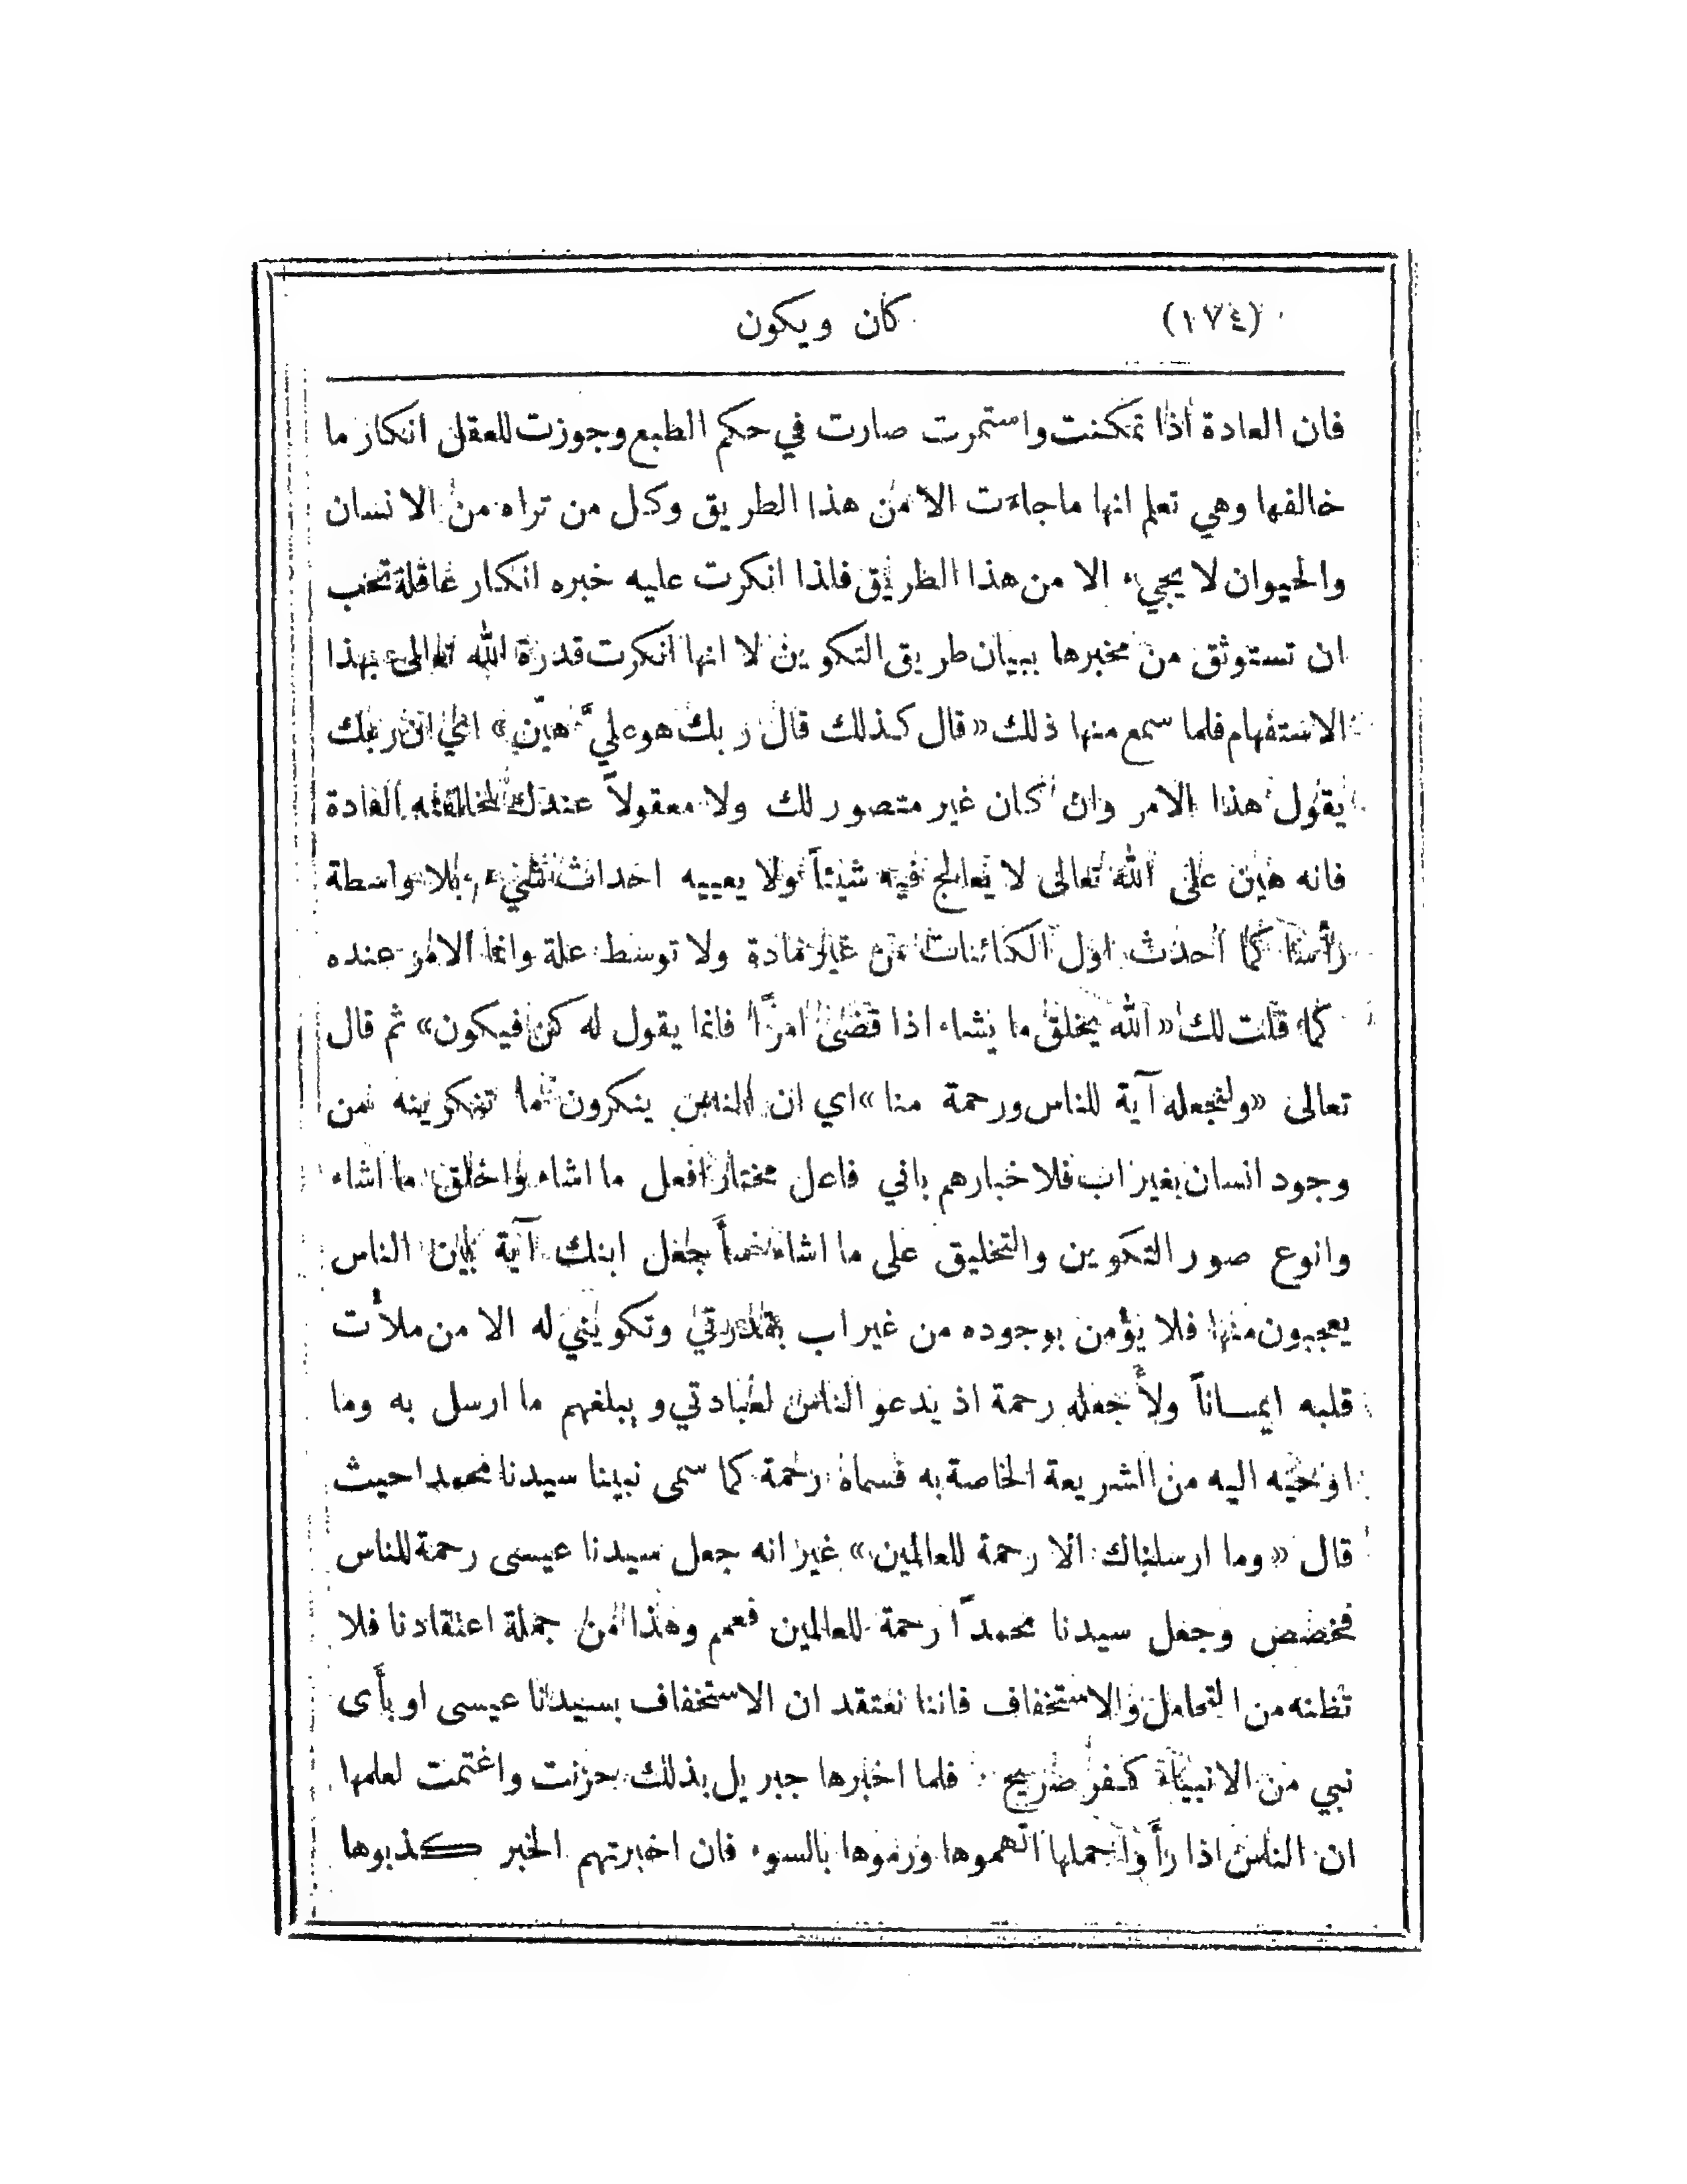 (١٧٤) كان ويكون
فان العادة اذا تمكنت واستمرت صارت في حكم الطبع وجوزت للعقل انكار ما
خالفها وهي تعلم انها ماجاءت الا من هذا الطريق وكل من تراه من الانسان
والحيوان لا يجيء الا من هذا الطريق فلذا انكرت عليه خبره انكار عاقلة تحب
ان تستوثق من مخبرها ببيان طريق التكوين لا انها انكرت قدرة الله تعالى بهذا
الاستفهام فلما سمع منها ذلك «قال كذلك قال ربك هو عليَّ هيّن» اي ان ربك
يقول هذا الامر وان كان غير متصور لك ولا معقولاً عندك لمخالفته العادة
فانه هين على الله تعالى لا يعالج فيه شيئاً ولا يعييه احداث شيء بلا واسطة
رأسا كما احدث اول الكائنات من غير مادة ولا توسط علة وانما الامر عنده
كما قلت لك «الله يخلق ما يشاء اذا قضى امرًا فانما يقول له كن فيكون» ثم قال
تعالى «ولنجعله آية للناس ورحمة منا» اي ان الناس ينكرون ما تنكرينه من
وجود انسان بغير اب فلاخبارهم باني فاعل مختار افعل ما اشاء واخلق ما اشاء
وانوع صور التكوين والتخليق على ما اشاء أجعل ابنك آية بين الناس
يعجبون منها فلا يؤمن بوجوده من غير اب بقدرتي وتكويني له الا من ملأت
قلبه ايمـانـاً ولأجعله رحمة اذ يدعو الناس لعبادتي ويبلغهم ما ارسل به وما
اوحيه اليه من الشريعة الخاصة به فسماه رحمة كما سمى نبينا سيدنا محمدا حيث
قال «وما ارسلناك الا رحمة للعالمين» غير انه جعل سيدنا عيسى رحمة للناس
فخصص وجعل سيدنا محمدًا رحمة للعالمين فعمم وهذا من جملة اعتقادنا فلا
تظنه من التحامل والاستخفاف فاننا نعتقد ان الاستخفاف بسيدنا عيسى او بأى
نبي من الانبياء كفر صريح فلما اخبرها جبريل بذلك حزنت واغتمت لعلمها
ان الناس اذا رأوا حملها اتهموها ورموها بالسوء فان اخبرتهم الخبر كذبوها